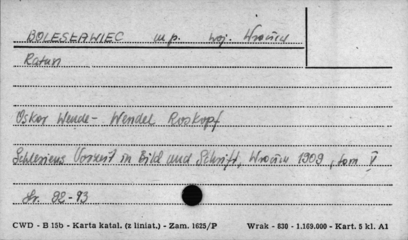 BOLESŁAWIEC m.p. woj. Wrocław
Ratusz
Oskar Wende - Wendel Roskopf
Schlesiens Vorzeit in Bild und Schrift, Wrocław 1909, tom V
str. 92-93
CWD - B 15b - Karta katal. (z liniat.) - Zam. 1625/P Wrak - 830 - 1.169.000 - Kart. 5 kl. A1